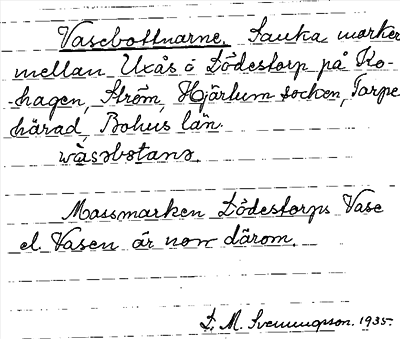 Vasebottnarne. Sanka marker
mellan Uxås o Dödestorp på Ko-
-hagen, Ström, Hjärtum socken, Torpe
härad, Bohus län.
wàsəbotanə.
Mossmarken Dödestorps Vase
el. Vasen är norr därom.
D. M. Svenungsson. 1935.